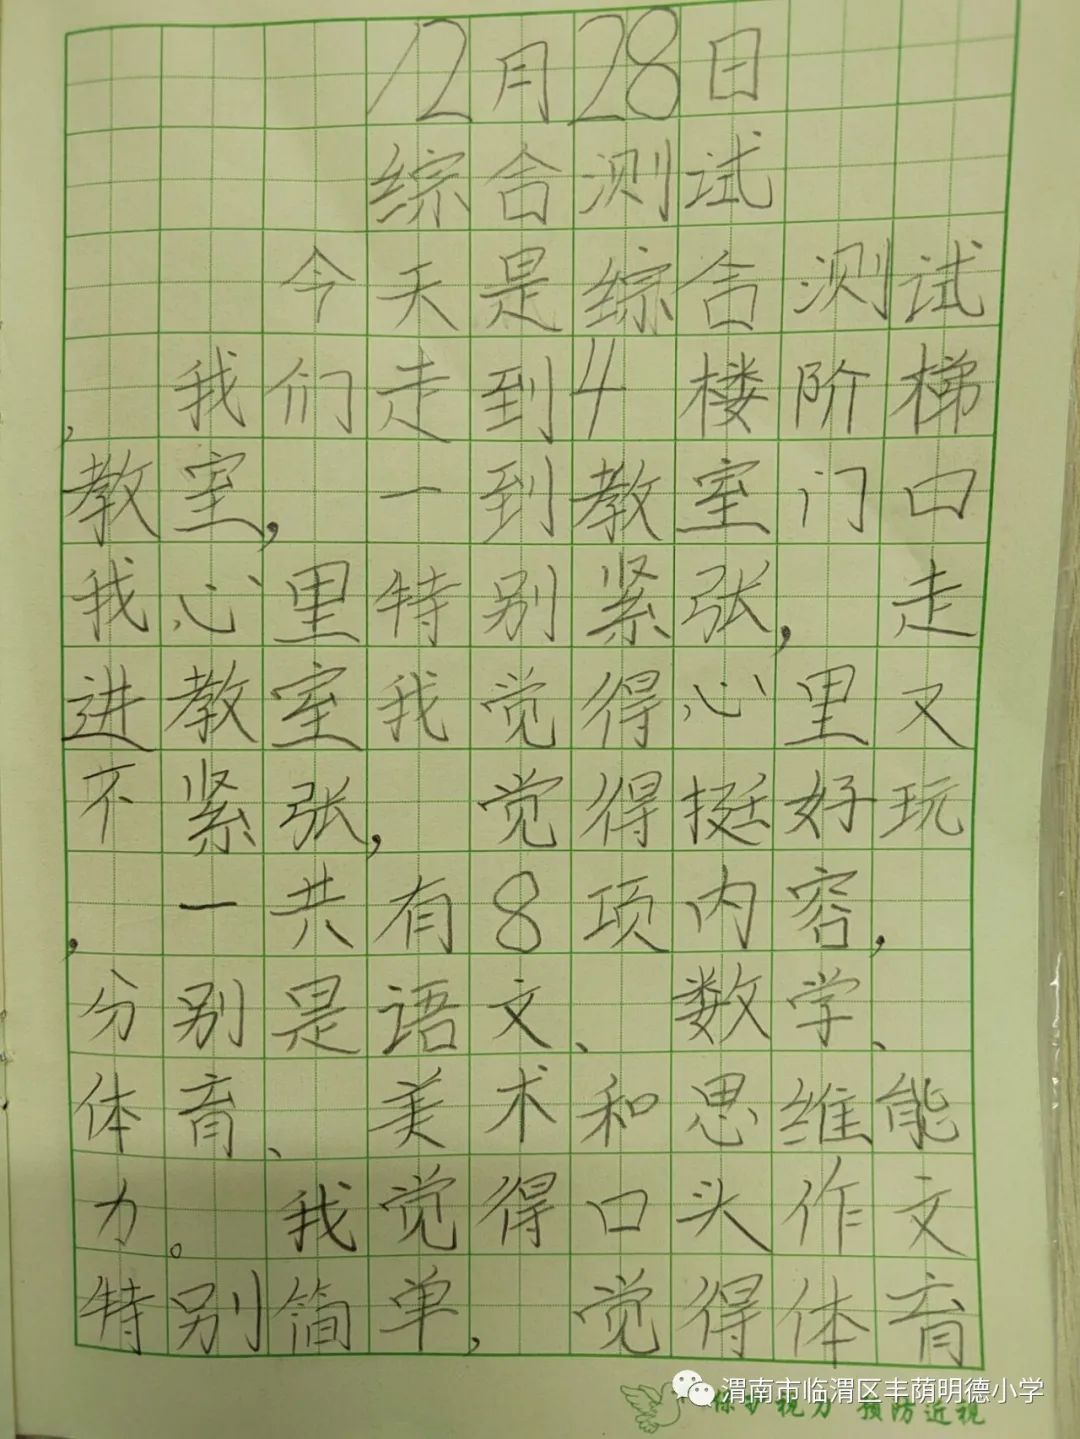 12月28日
综合测试
今天是综合测试
,我们走到4楼阶梯
教室,一到教室门口
我心里特别紧张,走
进教室我觉得心里又
不紧张,觉得挺好玩
,一共有8项内容,
分别是语文、数学、
体育、美术和思维能
力。我觉得口头作文
特别简单,觉得体育
渭南市临渭区丰荫明德小学
保护视力 预防近视